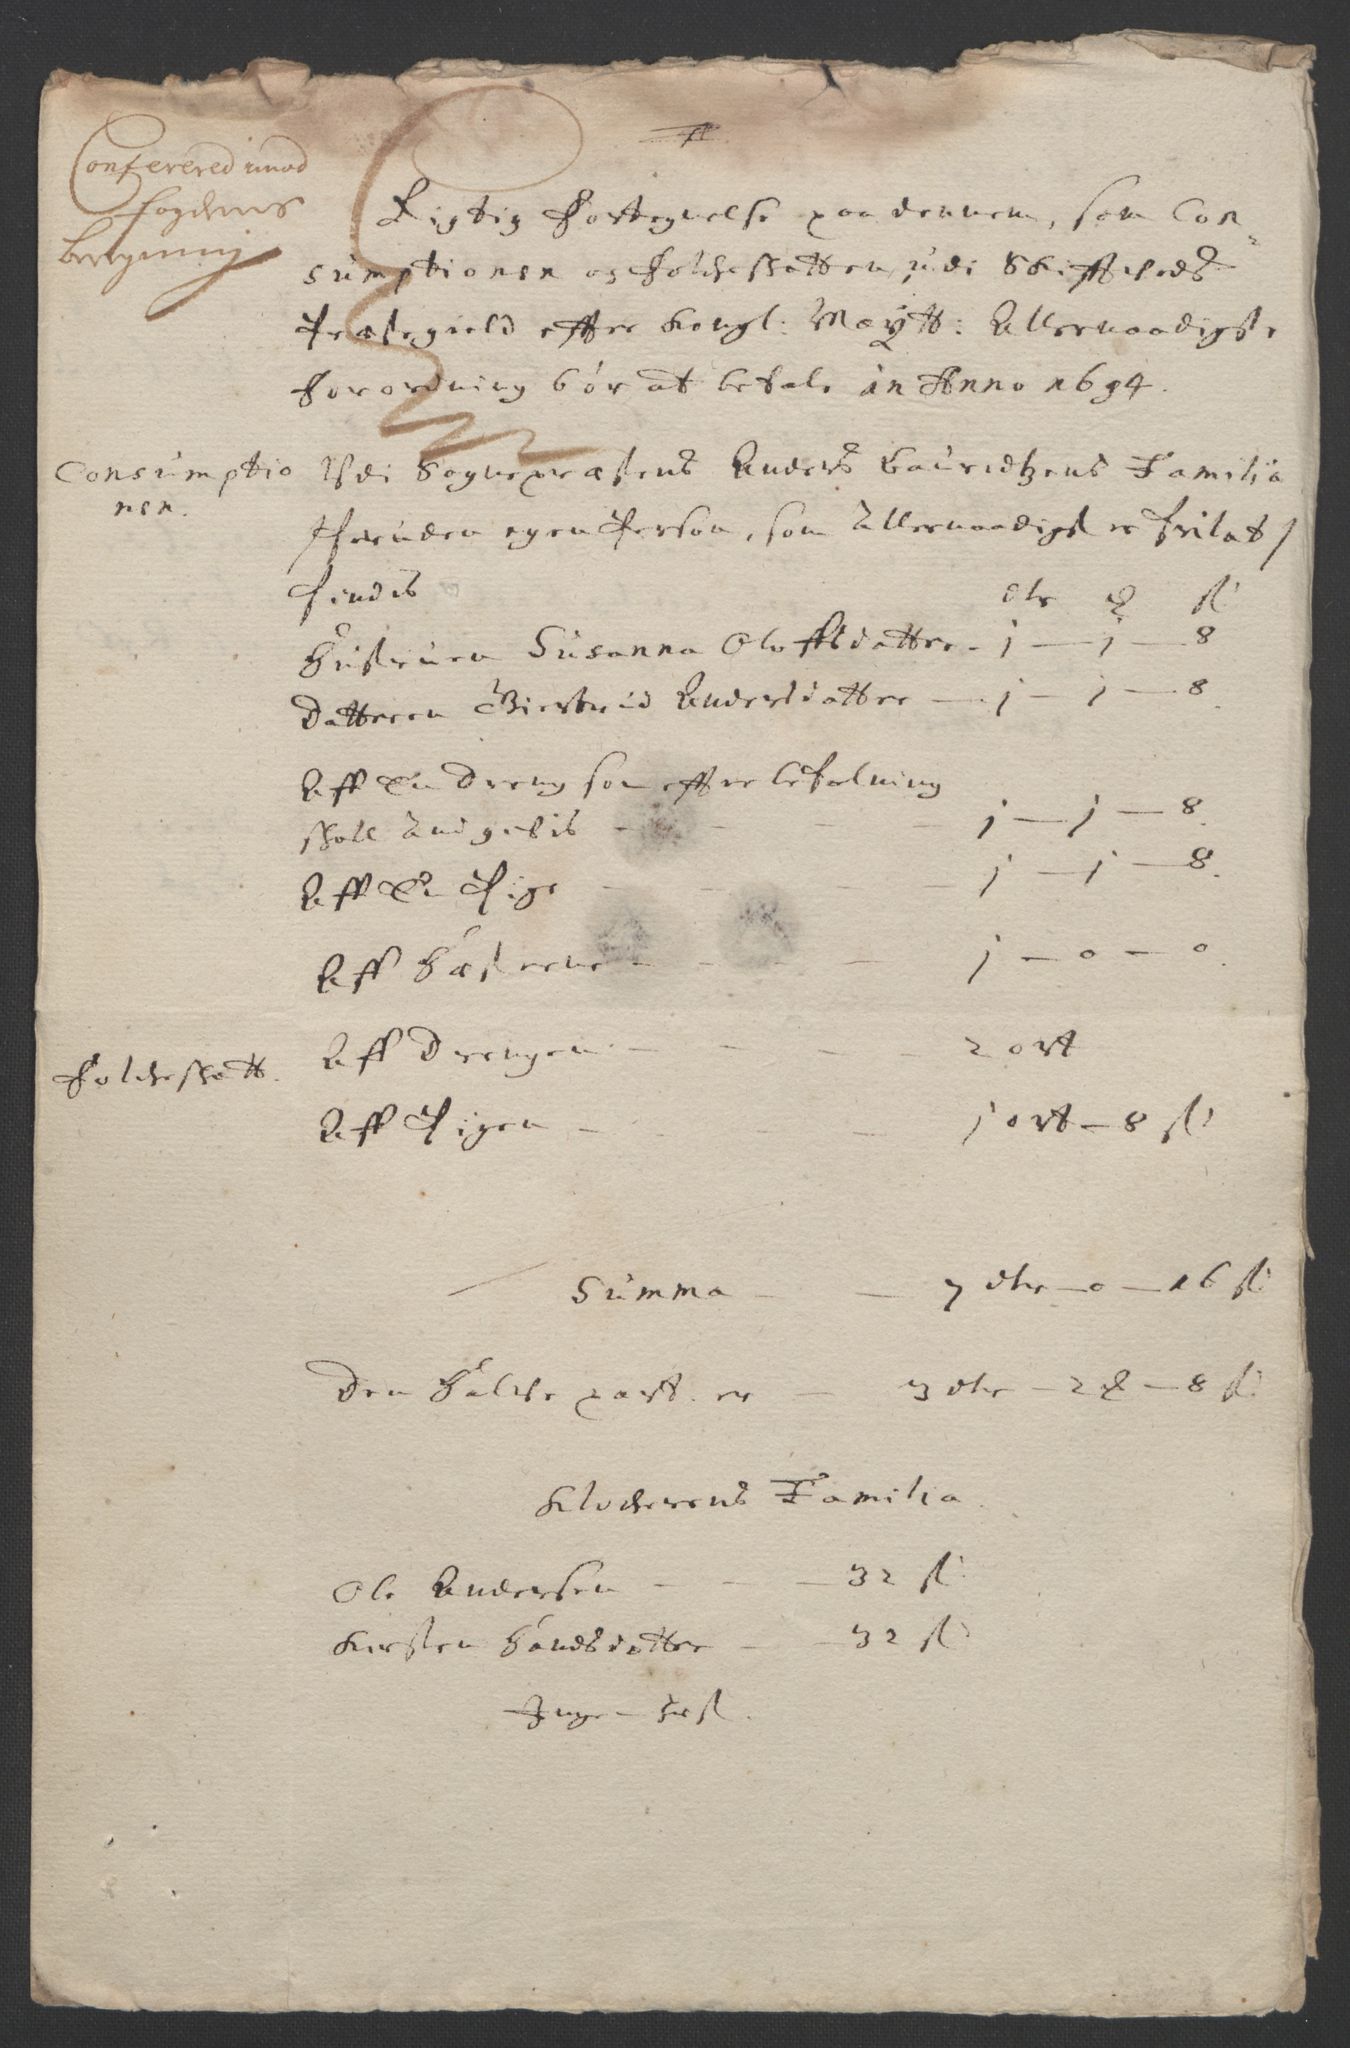 Conferered imod
fogdens
beregning
Rigtig Fortegnelse paa dennem, som Con-
sumptionen og Folcheskatten udi Skiptveds
Præstegield effter Kongl: Maÿtt: Allernaadigste
Forordning bör at betale in Anno 1694.
Consumptio
nen.
Udi Sogneprestens Anders Lauridtzens Familia
foruden egen Person, som Allernaadigst er frilat /
findis
dlr ꝶ sl
Hustruen Susanna Olufsdatter - 1 - 1 - 8
Datteren Giertrud Andersdatter - 1 - 1 - 8.
Aff En Dreng som effter befalning
skall Andgifvis - - - - 1 - 1 - 8.
Aff En Pige - - - - 1 - 1 - 8.
Aff Hæsterne - - - 1 - 0 - 0.
Folcheskatt.
Aff Drengen - - - 2 ort
Aff Pigen - - - 1 ort - 8 sl
Summa - - 7 dlr - 0 - 16 sl
Den halfve part er - 3 dlr - 2 ꝶ - 8 sl
Klocherens Familia.
Ole Andersen - - - 32 sl
Kirsten Handsdatter - - 32 sl
Ingen hest.